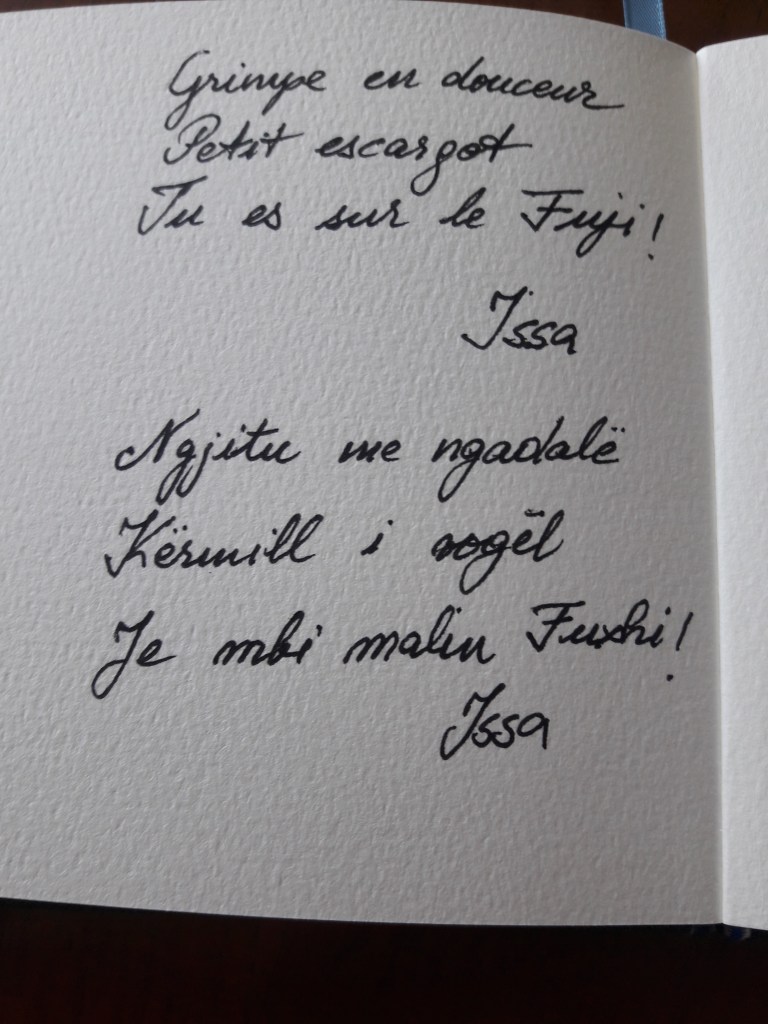 Grimpe en douceur
Petit escargot
Tu es sur le Fuji!
Issa
Ngjitu me ngadalë
Kërmill i vogël
Je mbi malin Fuxhi!
Issa